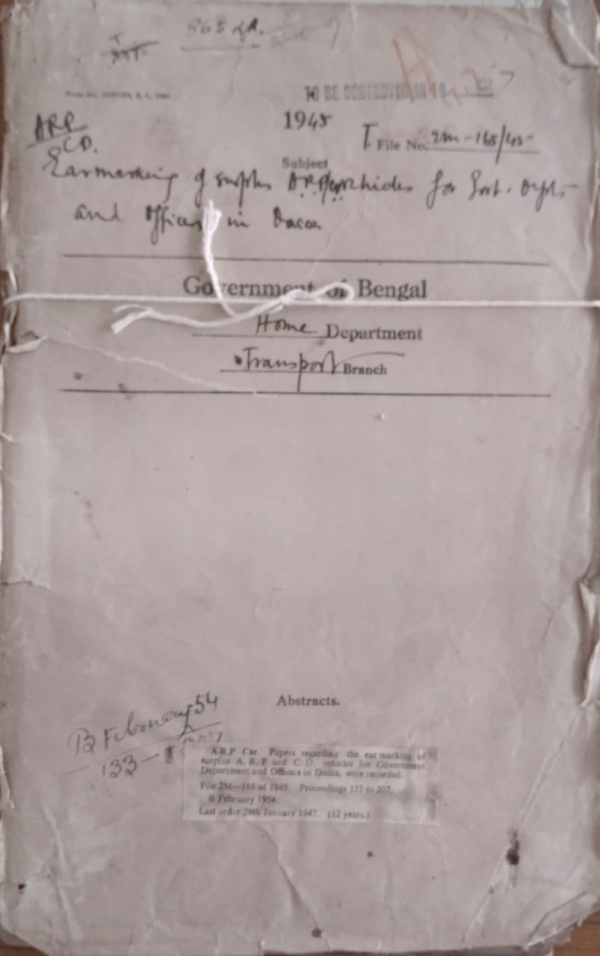 TO BE DESTROYED IN 19
ARP
1945
File No. 2M-165/45
& C.D.
Subject
Earmarking of surplus A.R.P. vehicles for Govt. Depts
and Offices in Dacca
Government of Bengal
Home Department
Transport Branch
Abstracts.
B February 54
133-
A.R.P Car Papers regarding the ear marking of
surplus A. R. P. and C. D. vehicles for Government
Department and Officers in Dacca, were recorded.
File 2M—165 of 1945. Proceedings 133 to 207,
B February 1954.
Last order 29th January 1947. (12 years.)